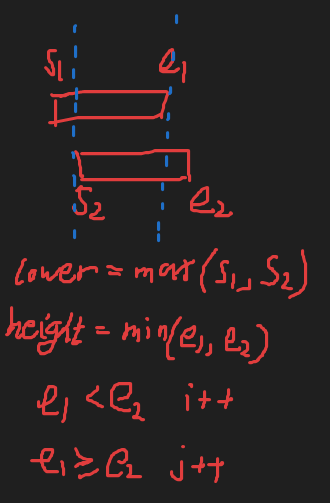 s₁ e₁
s₂ e₂
lower = max(s₁, s₂)
height = min(e₁, e₂)
e₁ < e₂ i++
e₁ ≥ e₂ j++